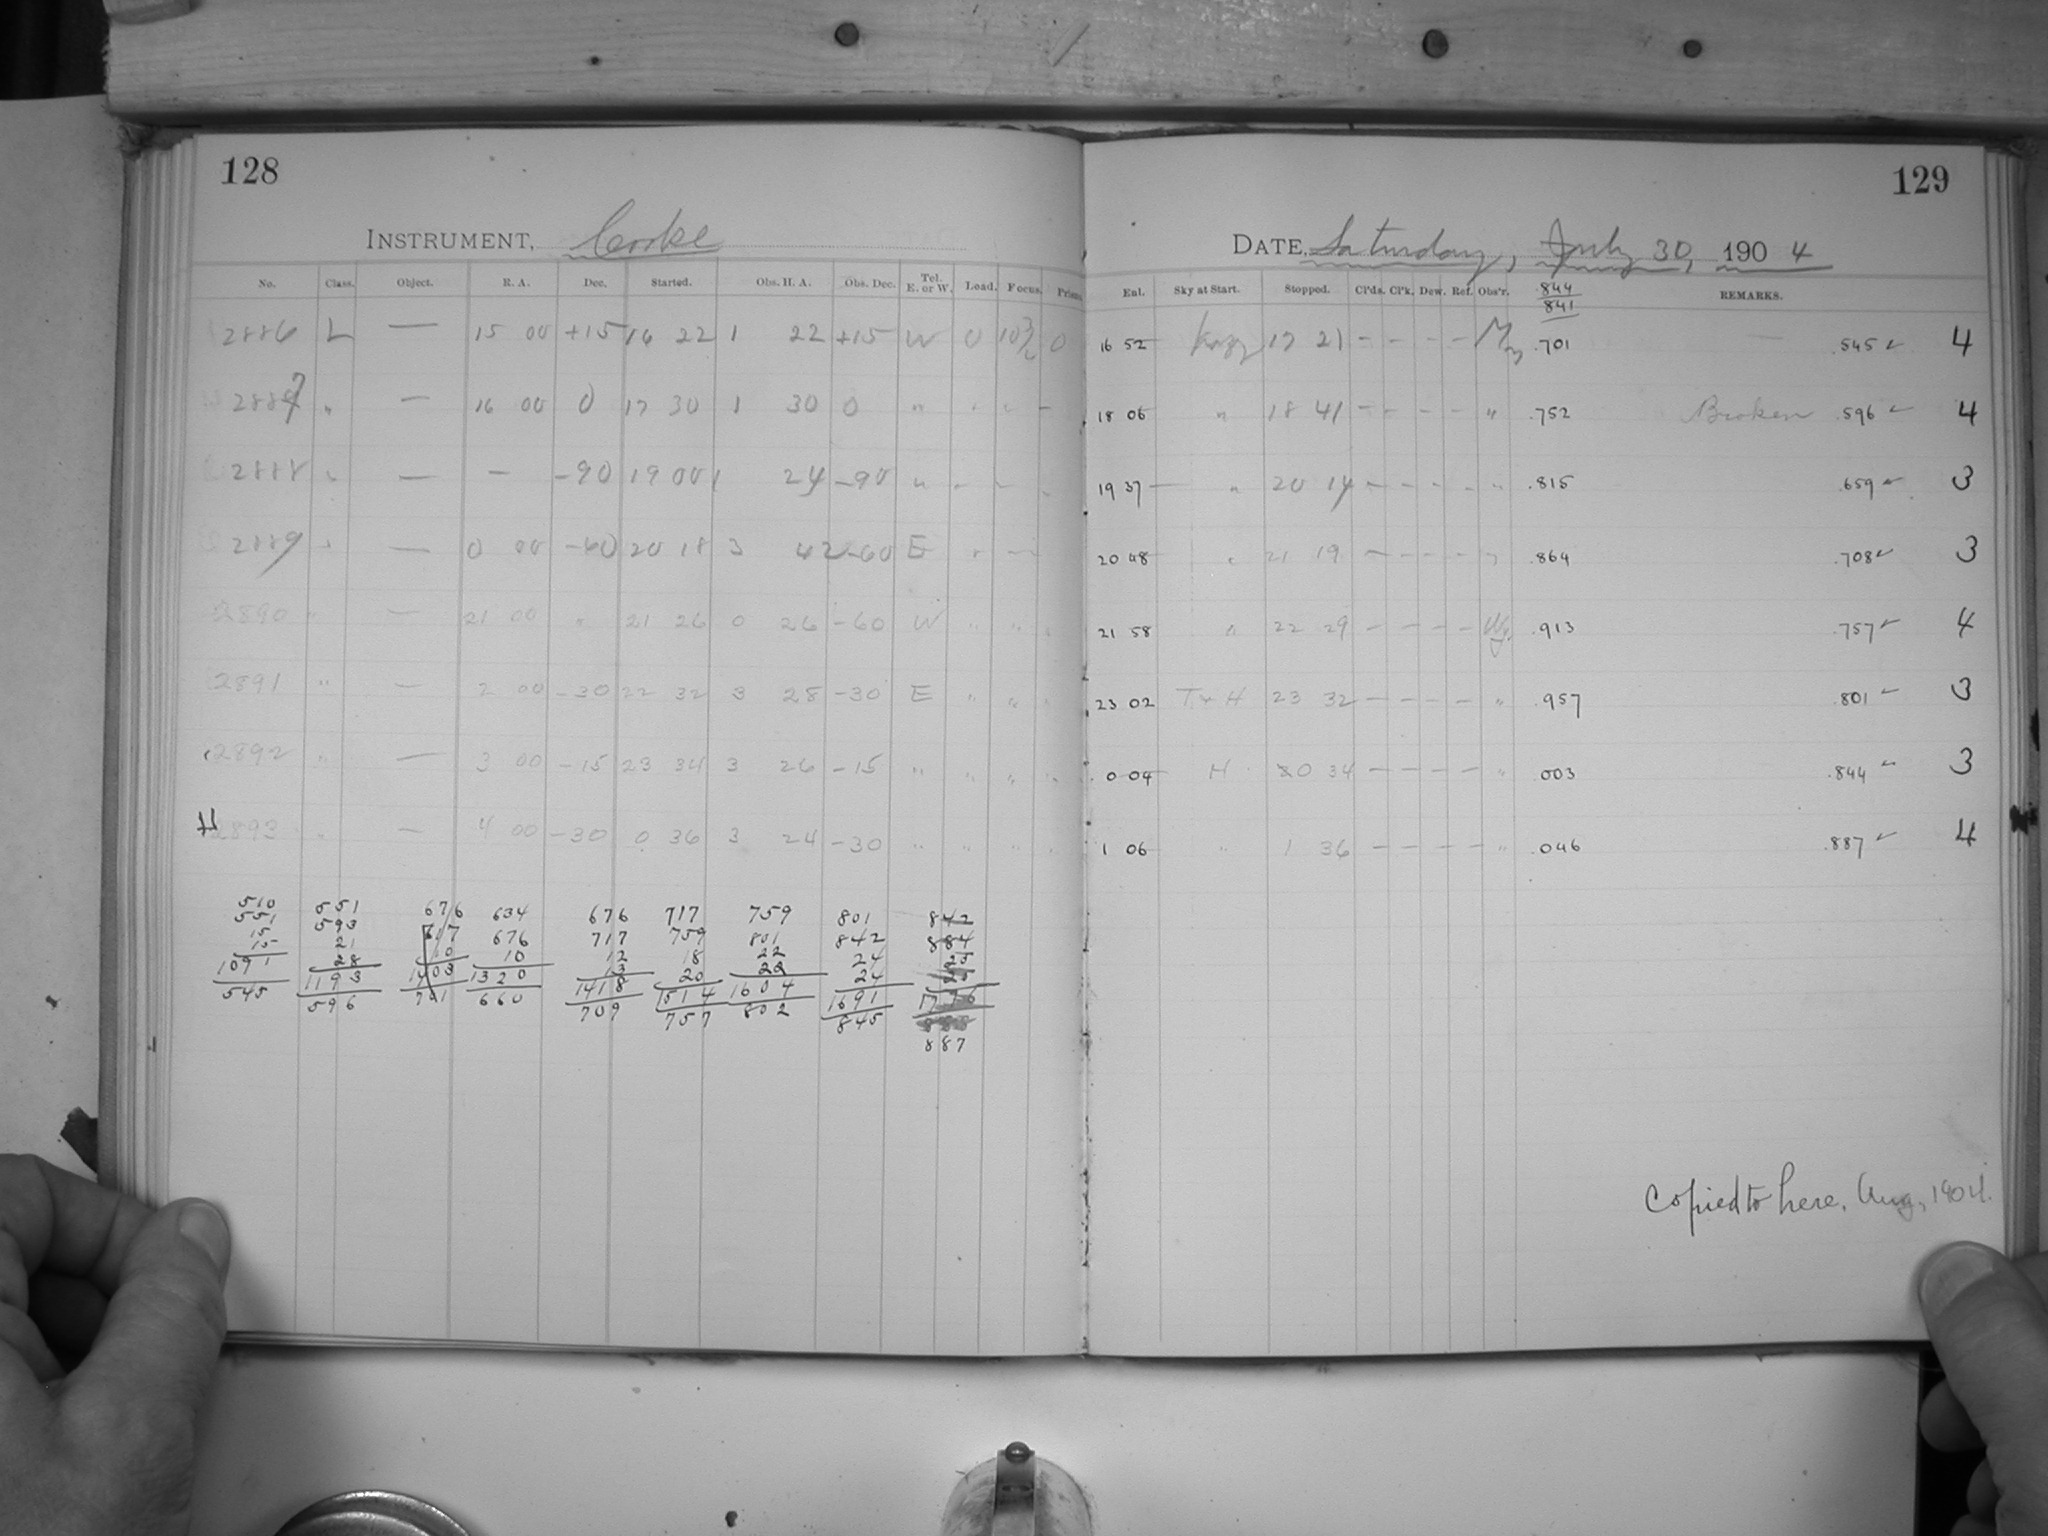 128
129
INSTRUMENT, Cooke
DATE, Saturday, July 30, 1904
No. Class. Object. R. A. Dec. Started. Obs. H. A. Obs. Dec. Tel. E. or W. Load. Focus. Prism
Exl. Sky at Start. Stopped. Cl'ds. Cl'k. Dew. Ref. Obs'r. .844 REMARKS.
841
2886 L — 15 00 +15 16 22 1 22 +15 W 0 0 16 52 Hazy 17 21 - - - - .701 — .545 ✓ 4
2887 " — 16 00 0 17 30 1 30 0 " 18 05 " 18 41 - - - - " .752 Broken .596 ✓ 4
2888 " — — -90 19 00 1 24 -90 " 19 37 " 20 14 - - - - " .815 .659 ✓ 3
2889 " — 0 00 -60 20 18 3 42 -60 E 20 48 " 21 19 - - - - " .864 .708 ✓ 3
2890 " — 21 00 " 21 26 0 26 -60 W " " " 21 58 " 22 29 - - - - .913 .757 ✓ 4
2891 " — 2 00 -30 22 32 3 28 -30 E " " " 23 02 T + H 23 32 - - - - " .957 .801 ✓ 3
2892 " — 3 00 -15 23 34 3 26 -15 " " " " 0 04 H 0 34 - - - - " .003 .844 ✓ 3
H 2893 " — 4 00 -30 0 36 3 24 -30 " " " " 1 06 " 1 36 - - - - " .046 .887 ✓ 4
510 551 676 634 676 717 759 801 842
551 593 717 676 717 759 801 842 884
15 21 10 10 12 18 22 24 25
15 28 1403 1320 13 20 22 24 25
1091 1193 701 660 1418 1514 1604 1691 1776
545 596 709 757 802 845
887
Copied to here, Aug, 1904.